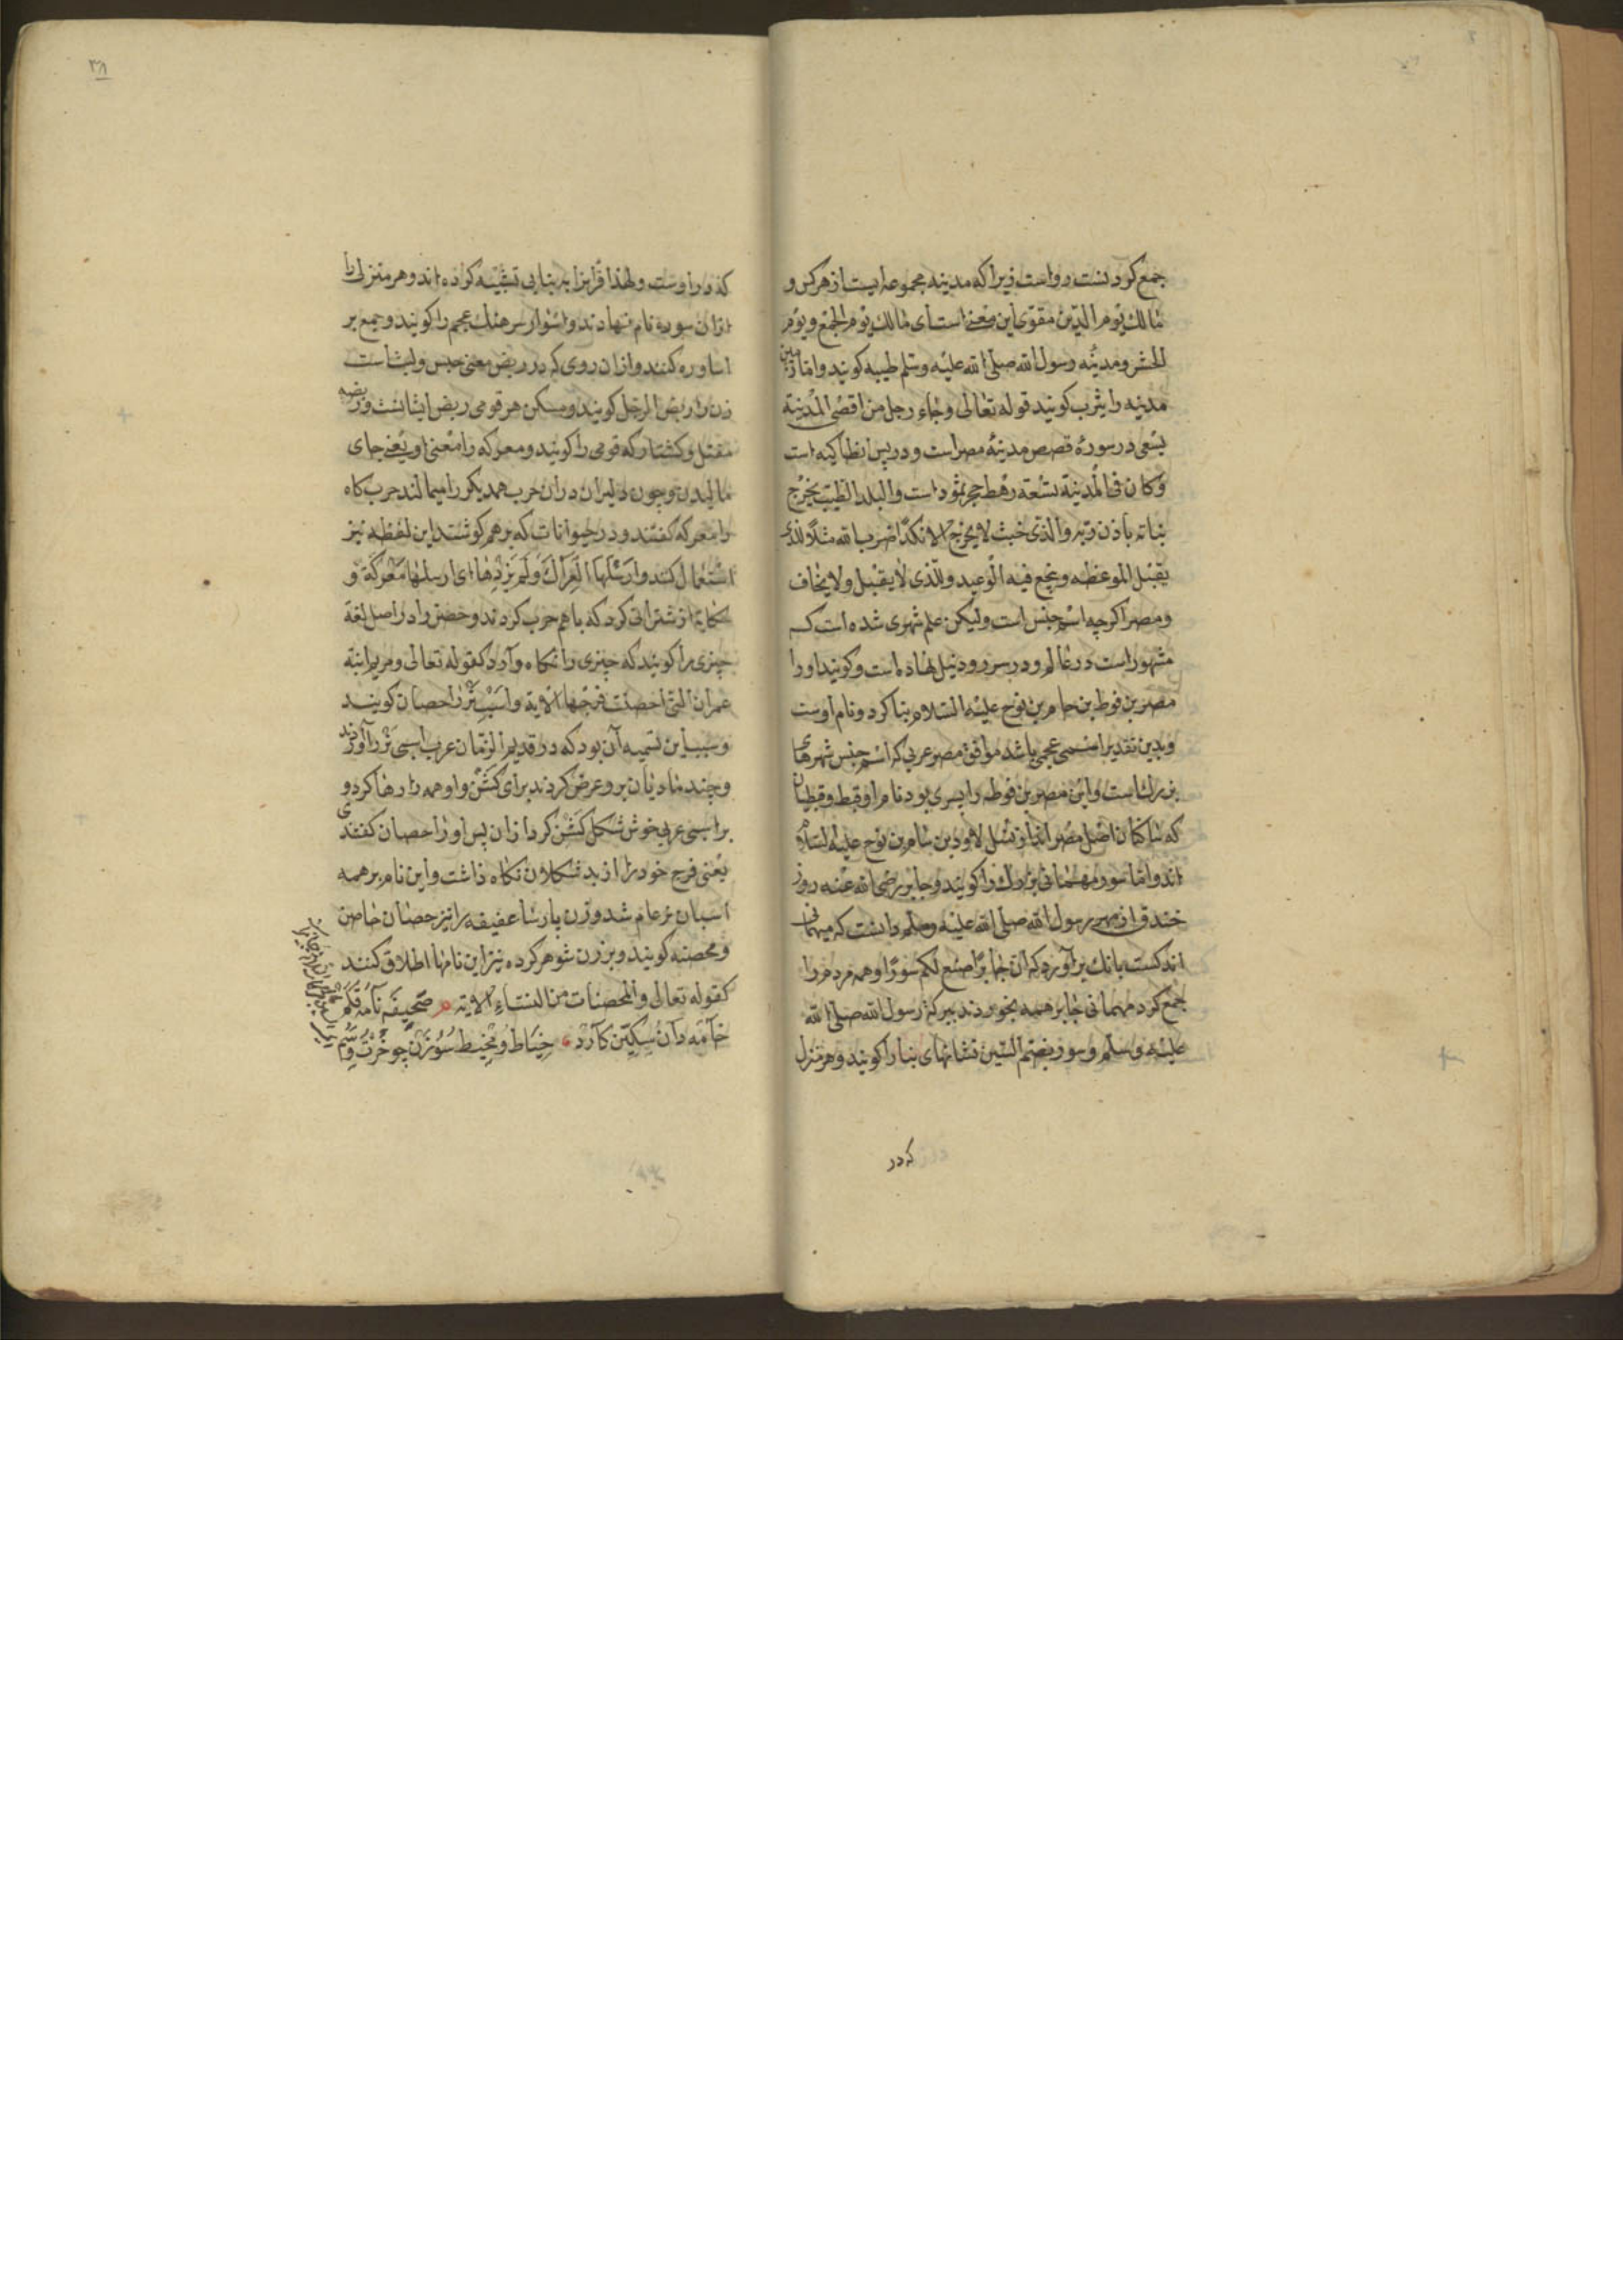 جمع کردنست رواست زیرا که مدینه مجموعه ایست از هر کس و
مالك یوم الدین مقوی این معنی است ای مالك یوم الجمع و یوم
الحشر و مدینه رسول الله صلی الله علیه وسلم طیبه کویند و اما زمین
مدینه را یثرب کویند قوله تعالی وجاء رجل من اقصی المدینة
یسعی در سورۀ قصص مدینۀ مصر است و در یس انطاکیه است
وکان فی المدینة تسعة رهط حجر ثمود است والبلد الطیب یخرج
نباته باذن ربه والذی خبث لا یخرج الا نکدا ضرب الله مثلا للذی
یقبل الموعظه وینجع فیه الوعید وللذی لا یقبل ولا یخاف
ومصر اکرچه اسم جنس است ولیکن علم شهری شده است که
مشهور است در عالم و در سر رود نیل نهاده است و کویند او را
مصر بن فوط بن حام بن نوح علیه السلام بنا کرد و نام اوست
وبدین تقدیر اسمی عجمی باشد موافق مصر عربی که اسم جنس شهرهای
بزرك است و این مصر بن فوط را پسری بود نام او قبط و قبطیان
که ساکنان اصل مصر اند از نسل لاود بن سام بن نوح علیه السلام
اند و اما سور مهمانی بزرك را کویند و جابر رضی الله عنه روز
خندق از بهر رسول الله صلی الله علیه وسلم دانست که میهمانی
اندکست بانك برآورد که ان جابرا صنع لکم سورا و همه مردم را
جمع کرد مهمانی جابر همه بخوردند ببرکة رسول الله صلی الله
علیه وسلم وسور بضم السین نشانهای بنا را کویند و هر منزل
که در
۳۸
که در اوست ولهذا قرانرا به بنایی تشبیه کرده اند و هر منزلی را
ازان سوره نام نهادند و اسوار سرهنك عجم را کویند و جمع بر
اساوره کنند و ازان روی که در ربض معنی حبس ولبث است
زن را ربض الرجل کویند و مسکن هر قومی ربض ایشانست و ربضه
مقتل و کشتار که قومی را کویند و معرکه را معنی او یعنی جای
مالیدن و چون دلیران دران حرب همدیکر را میمالند حرب کاه
را معرکه کفتند و در حیوانات که بر هم کوشند این لفظه نیز
استعمال کنند وارسلها العراك ولم یزدها ای ارسلها معرکة و
حکایة از شترانی کرد که باهم حرب کردند و حضن را در اصل لغة
چیزی را کویند که چیزی را نکاه دارد کقوله تعالی ومریم ابنة
عمران التی احصنت فرجها الایة و اسب نر را حصان کویند
و سبب این تسمیه آن بود که در قدیم الزمان عرب اسبی نر را آوردند
و چند مادیان برو عرض کردند برای کشن و او همه را رها کرد و
بر اسبی عربی خوش شکل کشن کرد ازان پس او را حصان کفتندی
یعنی فرج خود را از بد شکلان نکاه داشت و این نام بر همه
اسبان نر عام شد و زن پارسا عفیفه را نیز حصان حاصن
و محصنه کویند و بر زن شوهر کرده نیز این نامها اطلاق کنند
کقوله تعالی والمحصنات من النساء الایة صحیفه نامه قلم
خامه دان سکین کارد خیاط و مخیط سوزن چو خرت وسم